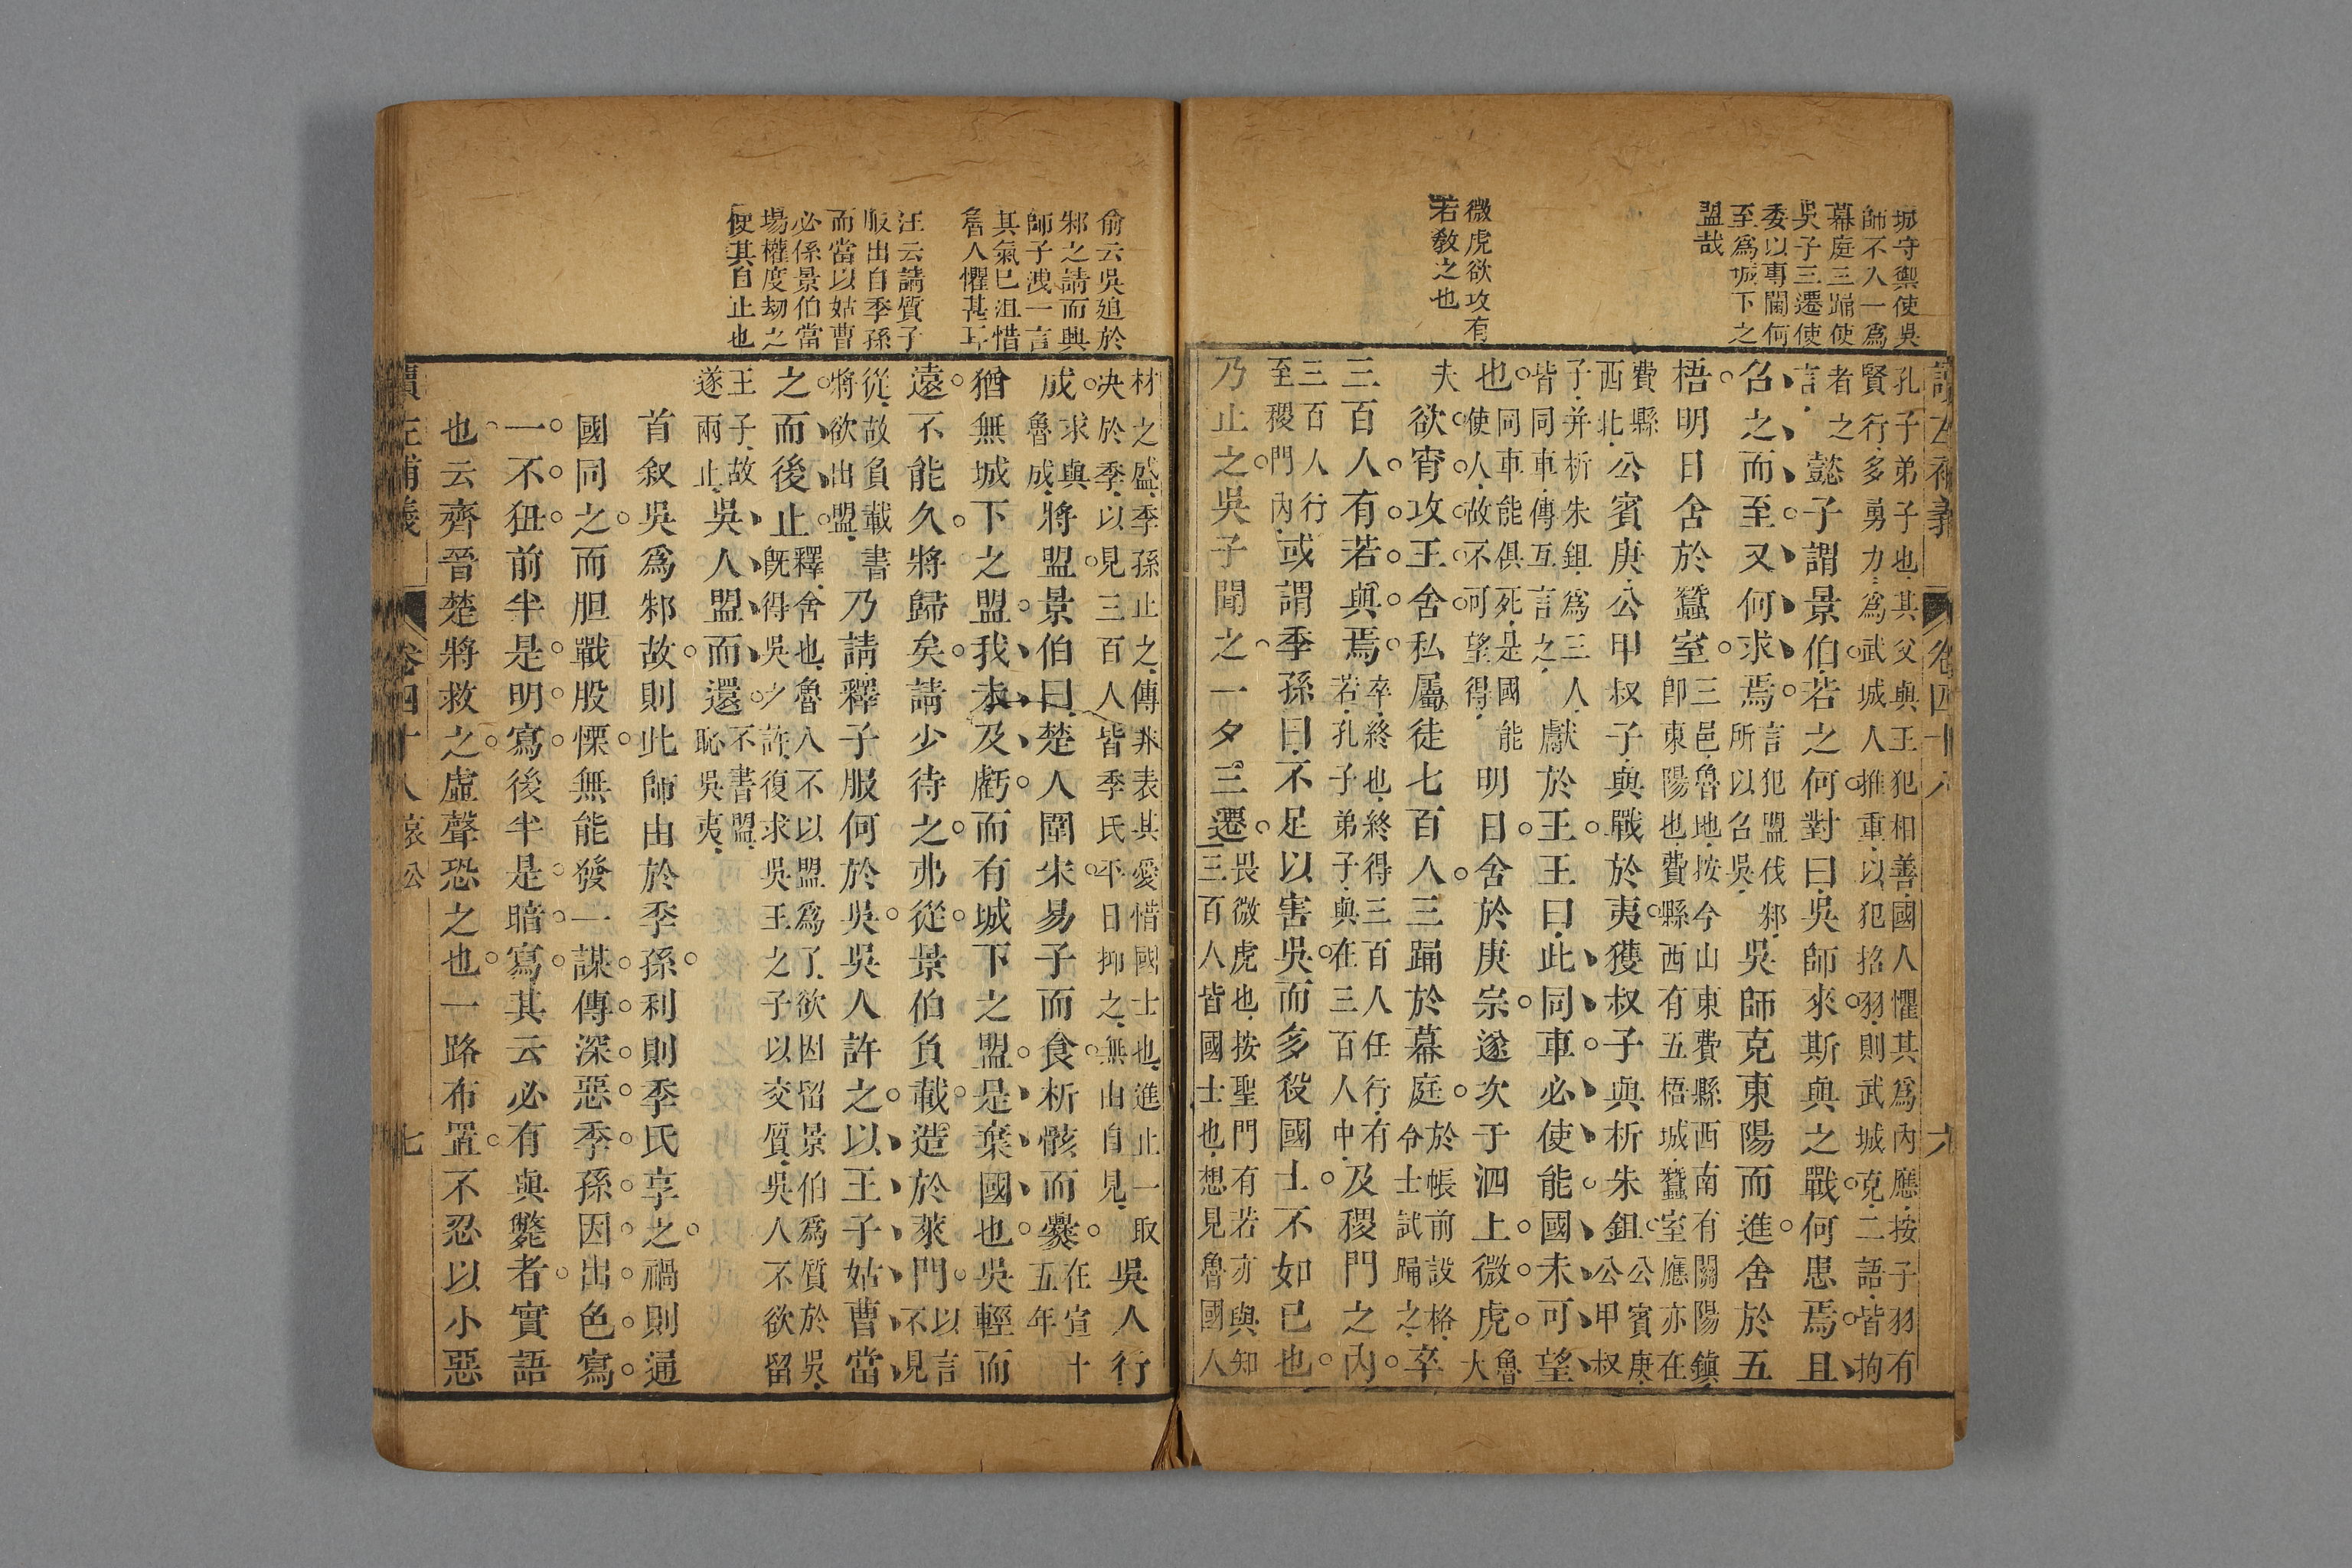 城守禦使吳
師不入一爲
幕庭三踊使
吳子三遷使
委以專閫何
至爲城下之
盟哉
微虎欲攻有
若教之也
孔子弟子也其父與王犯相善國人懼其爲內應按子羽有
賢行多勇力爲武城人推重以犯招羽則武城克二語皆拘
者之
言
懿子謂景伯若之何對曰吳師來斯與之戰何患焉且
召之而至又何求焉
言犯盟伐邾
所以召吳
吳師克東陽而進舍於五
梧明日舍於蠶室
三邑魯地按今山東費縣西南有關陽鎮
卽東陽也費縣西有五梧城蠶室應亦在
費縣
西北
公賓庚公甲叔子與戰於夷獲叔子與析朱鉏
公賓庚
公甲叔
子并析朱鉏爲三人
皆同車傳互言之
獻於王王曰此同車必使能國未可望
也
同車能俱死是國能
使人故不可望得
明日舍於庚宗遂次于泗上微虎
魯
大
夫
欲宵攻王舍私屬徒七百人三踊於幕庭
於帳前設格
令士試踊之
卒
三百人有若與焉
卒終也終得三百人任行有
若孔子弟子與在三百人中
及稷門之內
三百人行
至稷門內
或謂季孫曰不足以害吳而多殺國士不如已也
乃止之吳子聞之一夕三遷
畏微虎也按聖門有若亦與知
三百人皆國士也想見魯國人
讀左補義
卷四十八
六
俞云吳迫於
邾之請而興
師子洩一言
其氣已沮惜
魯人懼甚耳
汪云請質子
服出自季孫
而當以姑曹
必係景伯當
場權度劫之
使其自止也
材之盛季孫止之傳非表其愛惜國士也進止一取
决於季以見三百人皆季氏平日抑之無由自見
吳人行
成
求與
魯成
將盟景伯曰楚人圍宋易子而食析骸而爨
在宣十
五年
猶無城下之盟我未及虧而有城下之盟是棄國也吳輕而
遠不能久將歸矣請少待之弗從景伯負載造於萊門
以言
不見
從故負載書
將欲出盟
乃請釋子服何於吳吳人許之以王子姑曹當
之而後止
釋舍也魯人不以盟爲了欲因留景伯爲質於吳
既得吳之許復求吳王之子以交質吳人不欲留
王子故
遂兩止
吳人盟而還
不書盟
恥吳夷
首叙吳爲邾故則此師由於季孫利則季氏享之禍則通
國同之而胆戰股慄無能發一謀傳深惡季孫因出色寫
一不狃前半是明寫後半是暗寫其云必有與斃者實語
也云齊晉楚將救之虛聲恐之也一路布置不忍以小惡
讀左補義
卷四十八哀公
七